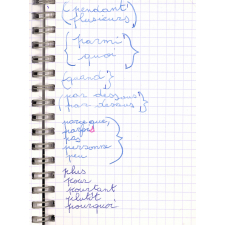 (pendant)
(plusieurs)
{parmi
quoi}
(quand)
(par dessous)
(par dessus)
parce que,
parfois
pas
personne
peu
plus
pour
pourtant
plutôt
pourquoi